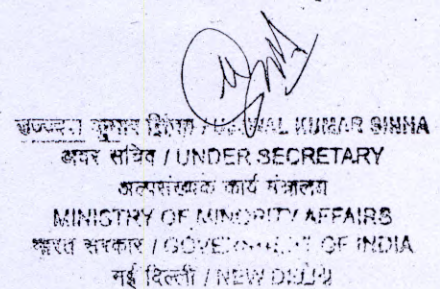 कुमार / UJJWAL KUMAR SINHA
अवर सचिव / UNDER SECRETARY
अल्पसंख्यक कार्य मंत्रालय
MINISTRY OF MINORITY AFFAIRS
भारत सरकार / GOVERNMENT OF INDIA
नई दिल्ली / NEW DELHI